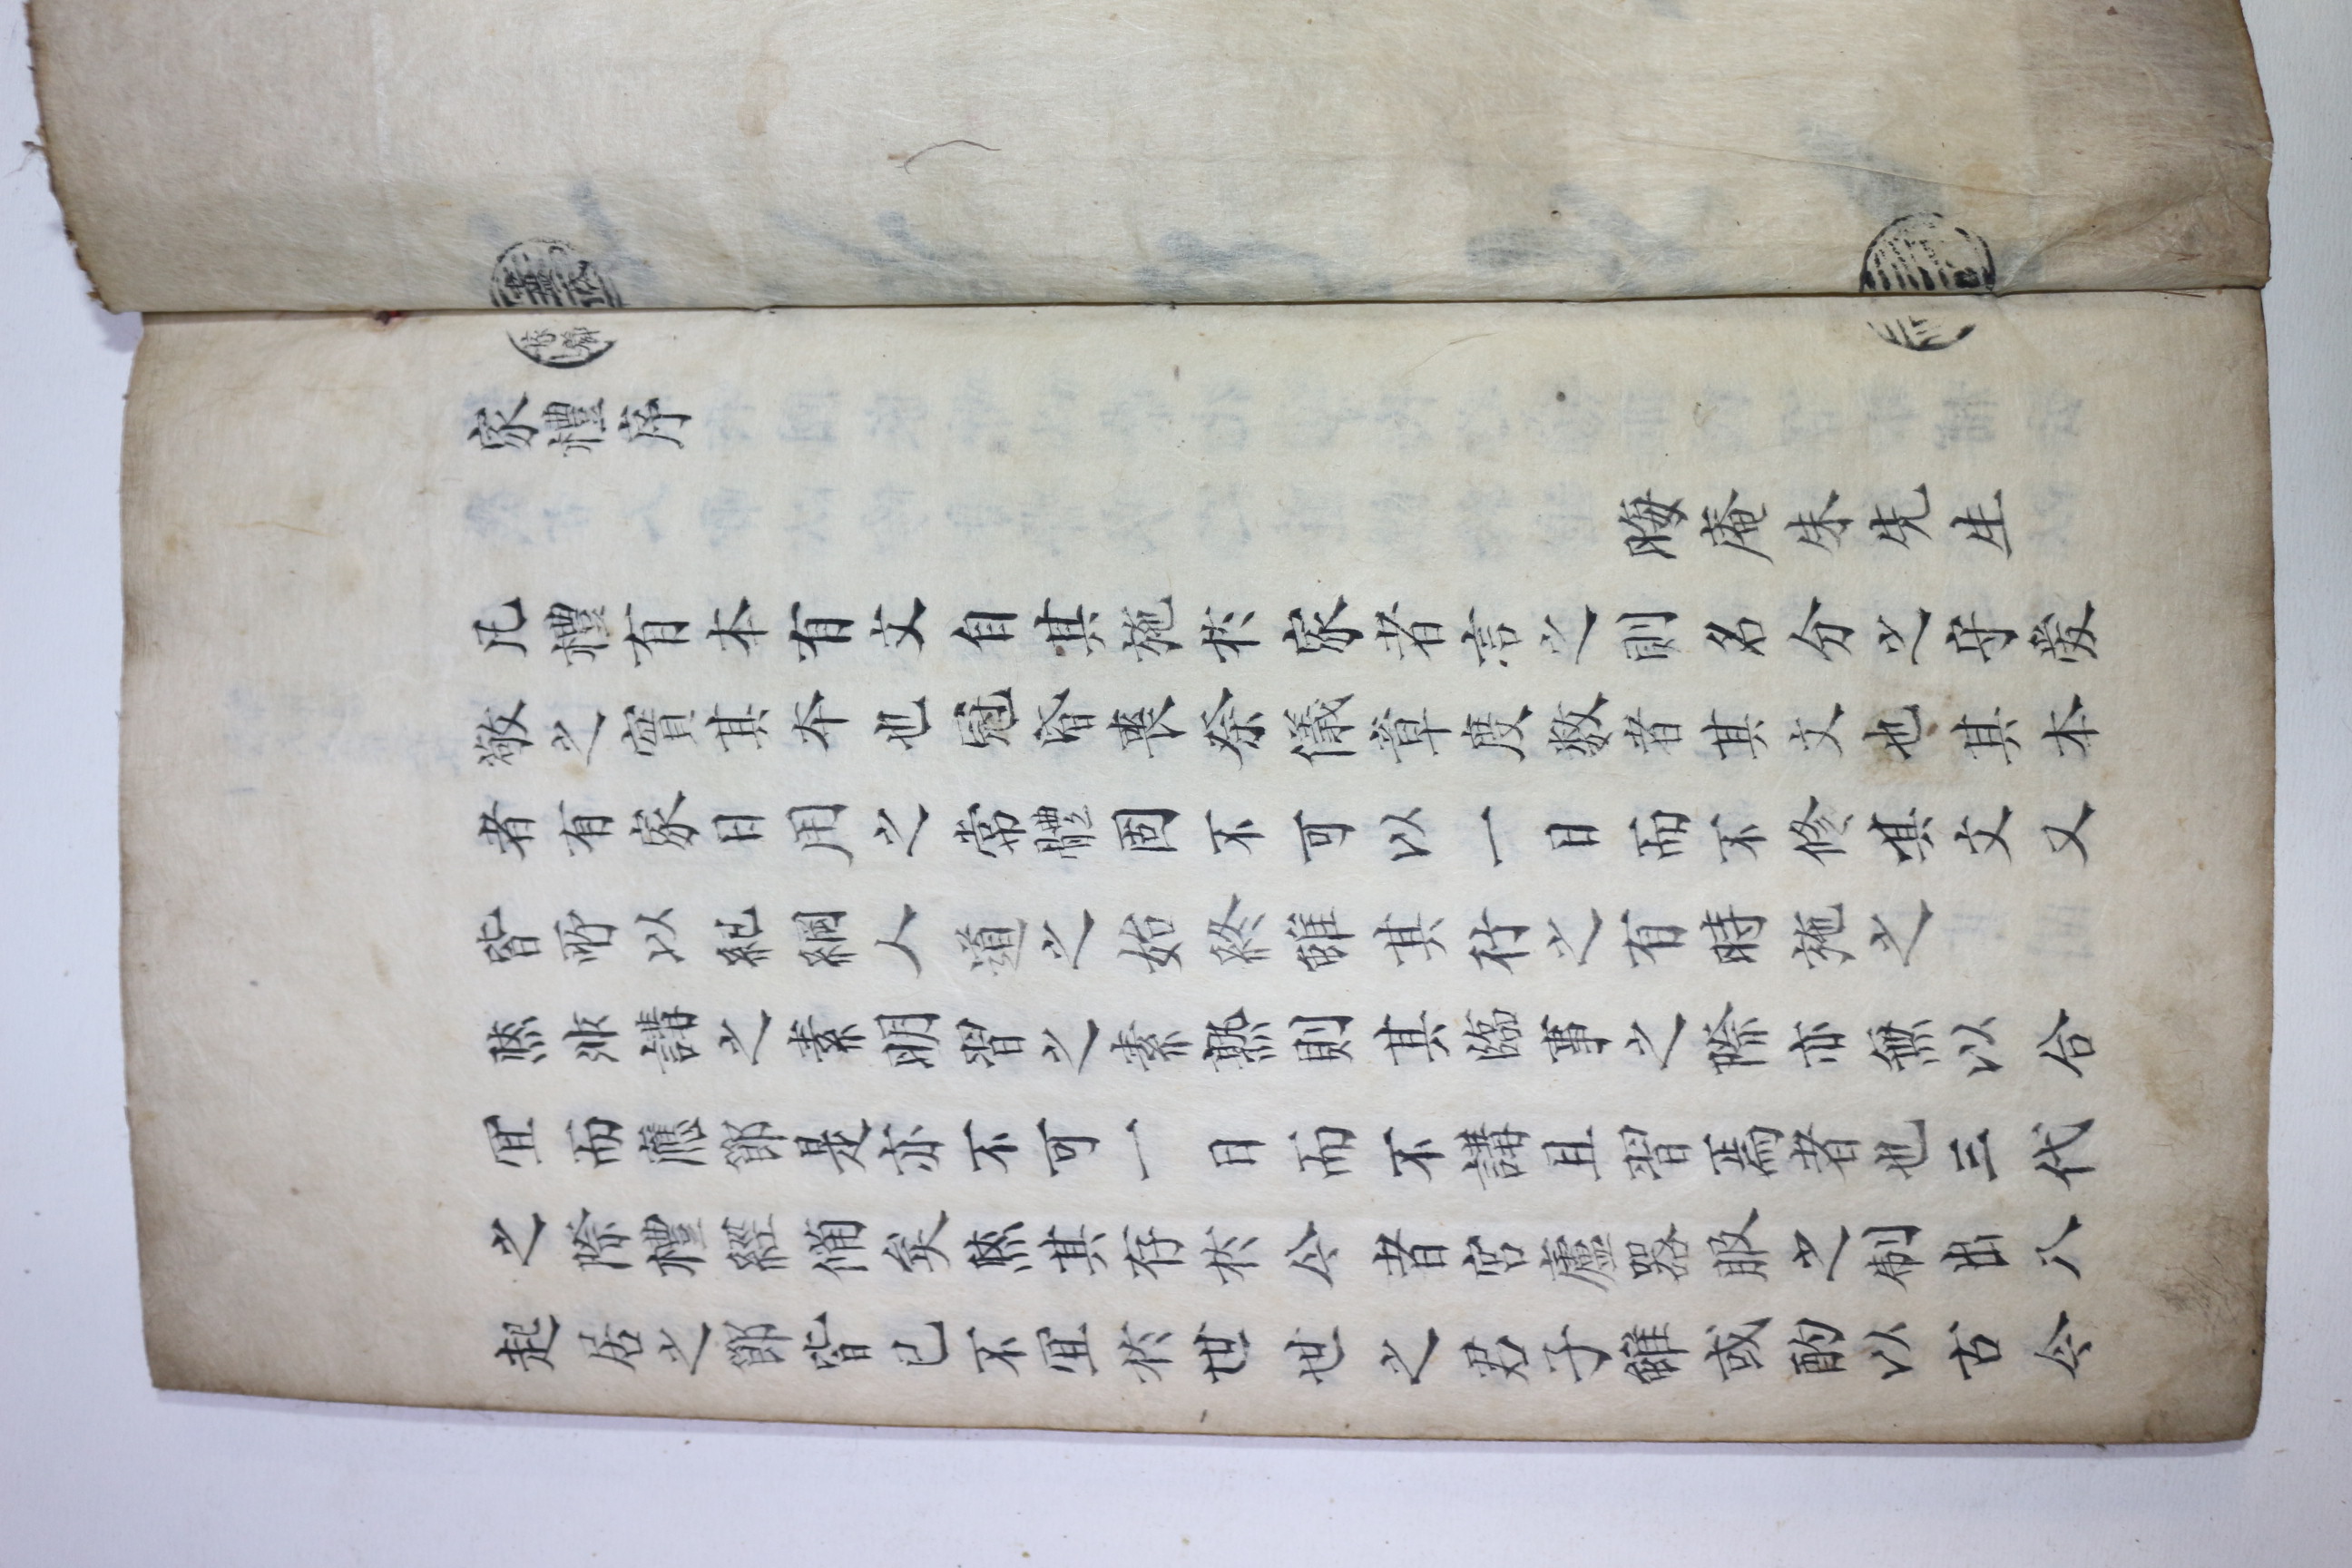 家禮序
晦庵朱先生
凡禮有本有文自其施於家者言之則名分之守爱
敬之實其本也冠昏喪祭儀章度数者其文也其本
者有家日用之常體固不可以一日而不修其文又
皆所以紀綱人道之始終雖其行之有時施之
然非講之素明習之素熟則其臨事之際亦無以合
冝而應節是亦不可一日而不講且習焉者也三代
之際禮經俻矣然其存於今者宮廬器服之制出入
起居之節皆已不冝於世世之君子雖或酌以古今